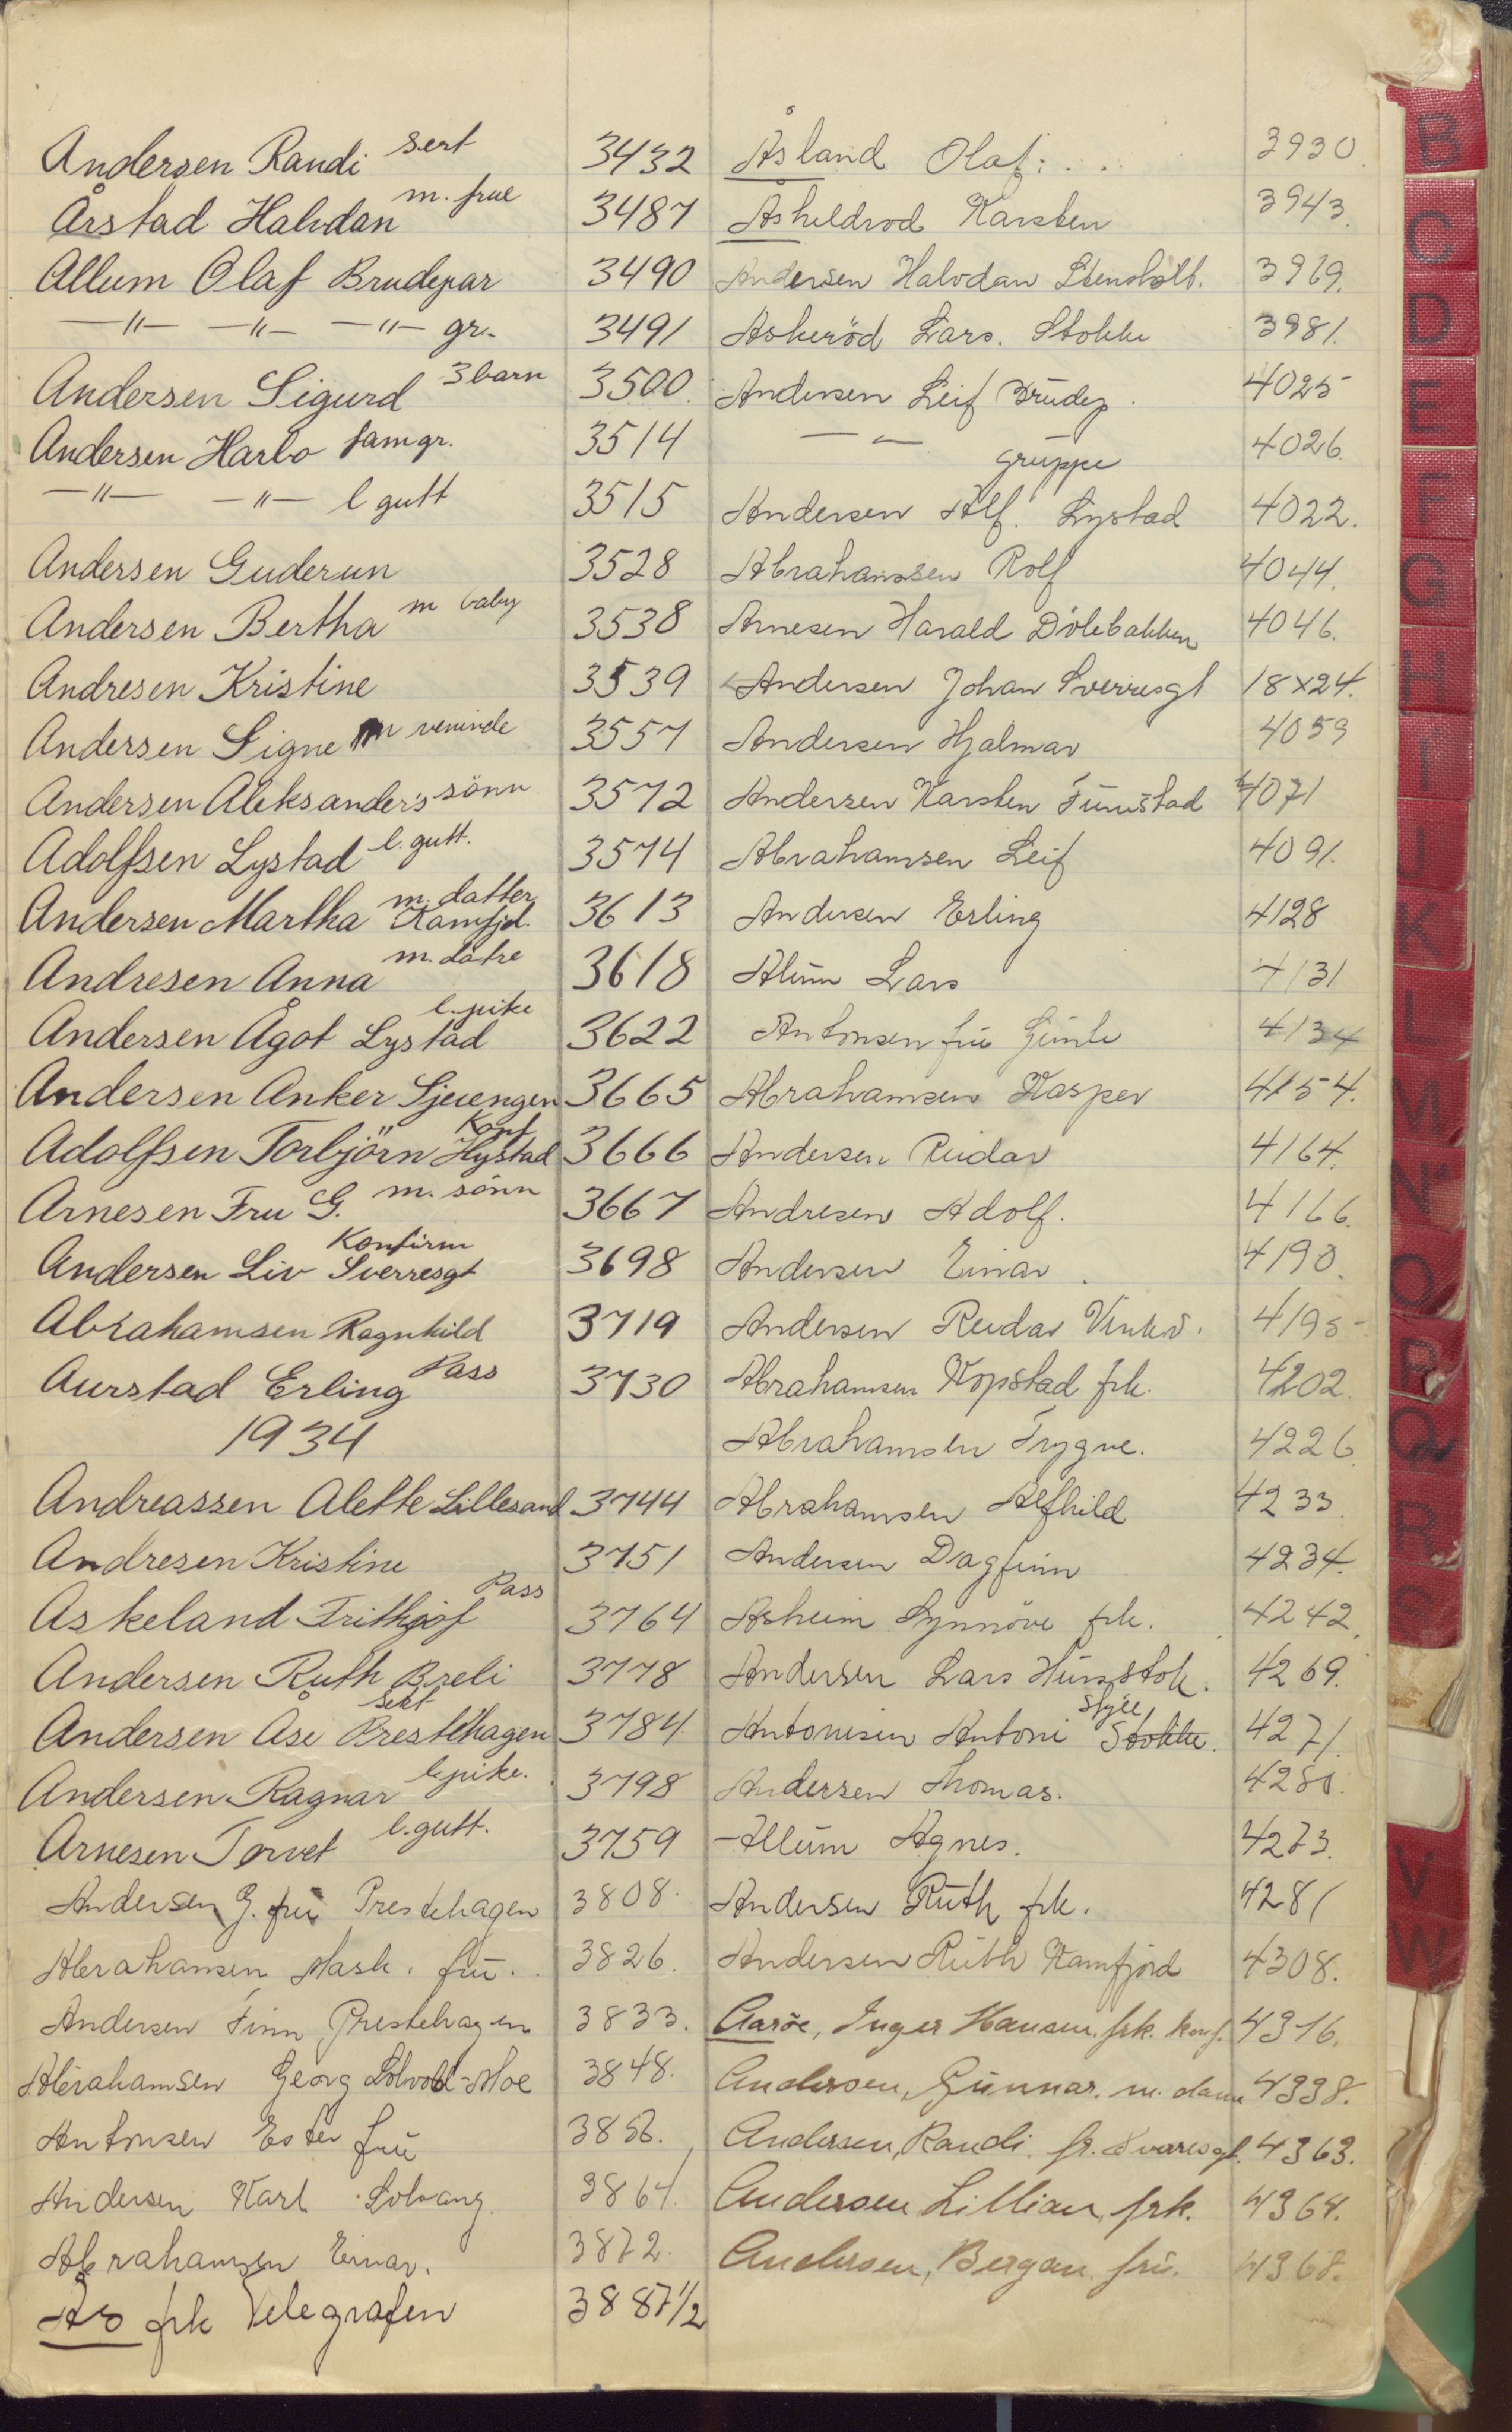 Andersen Randi sert 3432
Årstad Halvdan m. frue 3487
Allum Olaf Brudepar 3490
—"— —"— —"— gr. 3491
Andersen Sigurd 3 barn 3500.
Andersen Harbo famgr. 3514
—"— —"— l gutt 3515
Andersen Guderun 3528
Andersen Bertha m baby 3538
Andresen Kristine 3539
Andersen Signe m veninde 3557
Andersen Aleksander's sönn 3572
Adolfsen Lystad l. gutt. 3574
Andersen Martha m. datter Kamfjd. 3613
Andresen Anna m. døtre 3618
Andersen Ågot Lystad l. pike 3622
Andersen Anker Sjeuengen 3665
Adolfsen Torbjörn Konf Hystad 3666
Arnesen Fru G. m. sönn 3667
Andersen Liv Konfirm Sverresgt 3698
Abrahamsen Ragnhild 3719
Aurstad Erling Pass 3730
1934
Andreassen Alette Lillesand 3744
Andresen Kristine 3751
Askeland Frithjof Pass 3764
Andersen Ruth Breli 3778
Andersen Åse sekt Prestehagen 3784
Andersen Ragnar l. pike. 3798
Arnesen Torvet l. gutt. 3759
Andersen G. frü Prestehagen 3808.
Abrahamsen Mask. frü. 3826.
Andersen Finn Prestehagen 3833.
Abrahamsen Georg -Moe 3848.
Antonsen Ester frü 3856.
Andersen Karl Solvang. 3864.
Abrahamsen Einar. 3872.
Ås frk Telegrafen 3887½
Åsland Olaf: . . 3930.
Åsheldrod Karsten 3943.
Andersen Halvdan Stensholt. 3969.
Askeröd Lars. Stokke 3981.
Andersen Leif Brüdep. 4025
— " — grüppe 4026.
Andersen Alf. Lystad 4022.
Abrahamsen Rolf 4044.
Arnesen Harald Dölebakken 4046.
Andersen Johan Sverresgt 18×24.
Andersen Hjalmar 4059
Andersen Karsten Fürüstad 4071
Abrahamsen Leif 4091.
Andersen Erling 4128
Alüm Lars 4131
Antonsen frü Gimle 4134
Abrahamsen Kasper 4154.
Andersen Reidar 4164.
Andresen Adolf. 4166.
Andersen Einar. 4190.
Andersen Reidar 4195-
Abrahamsen Kopstad frk. 4202.
Abrahamsen Trygve. 4226
Abrahamsen Alfhild 4233.
Andersen Dagfinn 4234.
Asheim Synnöve frk. 4242.
Andersen Lars Hünsstok. 4269.
Antonisen Antoni Stokke. 4271.
Andersen Thomas. 4280.
Allüm Agnes. 4273.
Andersen Rüth frk. 4281
Andersen Rüth Kamfjord 4308.
Aaröe, Inger Hansen, frk. konf. 4316.
Andersen, Günnar. m. dame 4338.
Andersen, Randi. fr. Sverresgt. 4363.
Andersen, Lillian, frk. 4364.
Andersen, Bergan, frü. 4368.
B
C
D
E
F
G
H
I
J
K
L
M
N
O
P
Q
R
S
V
W